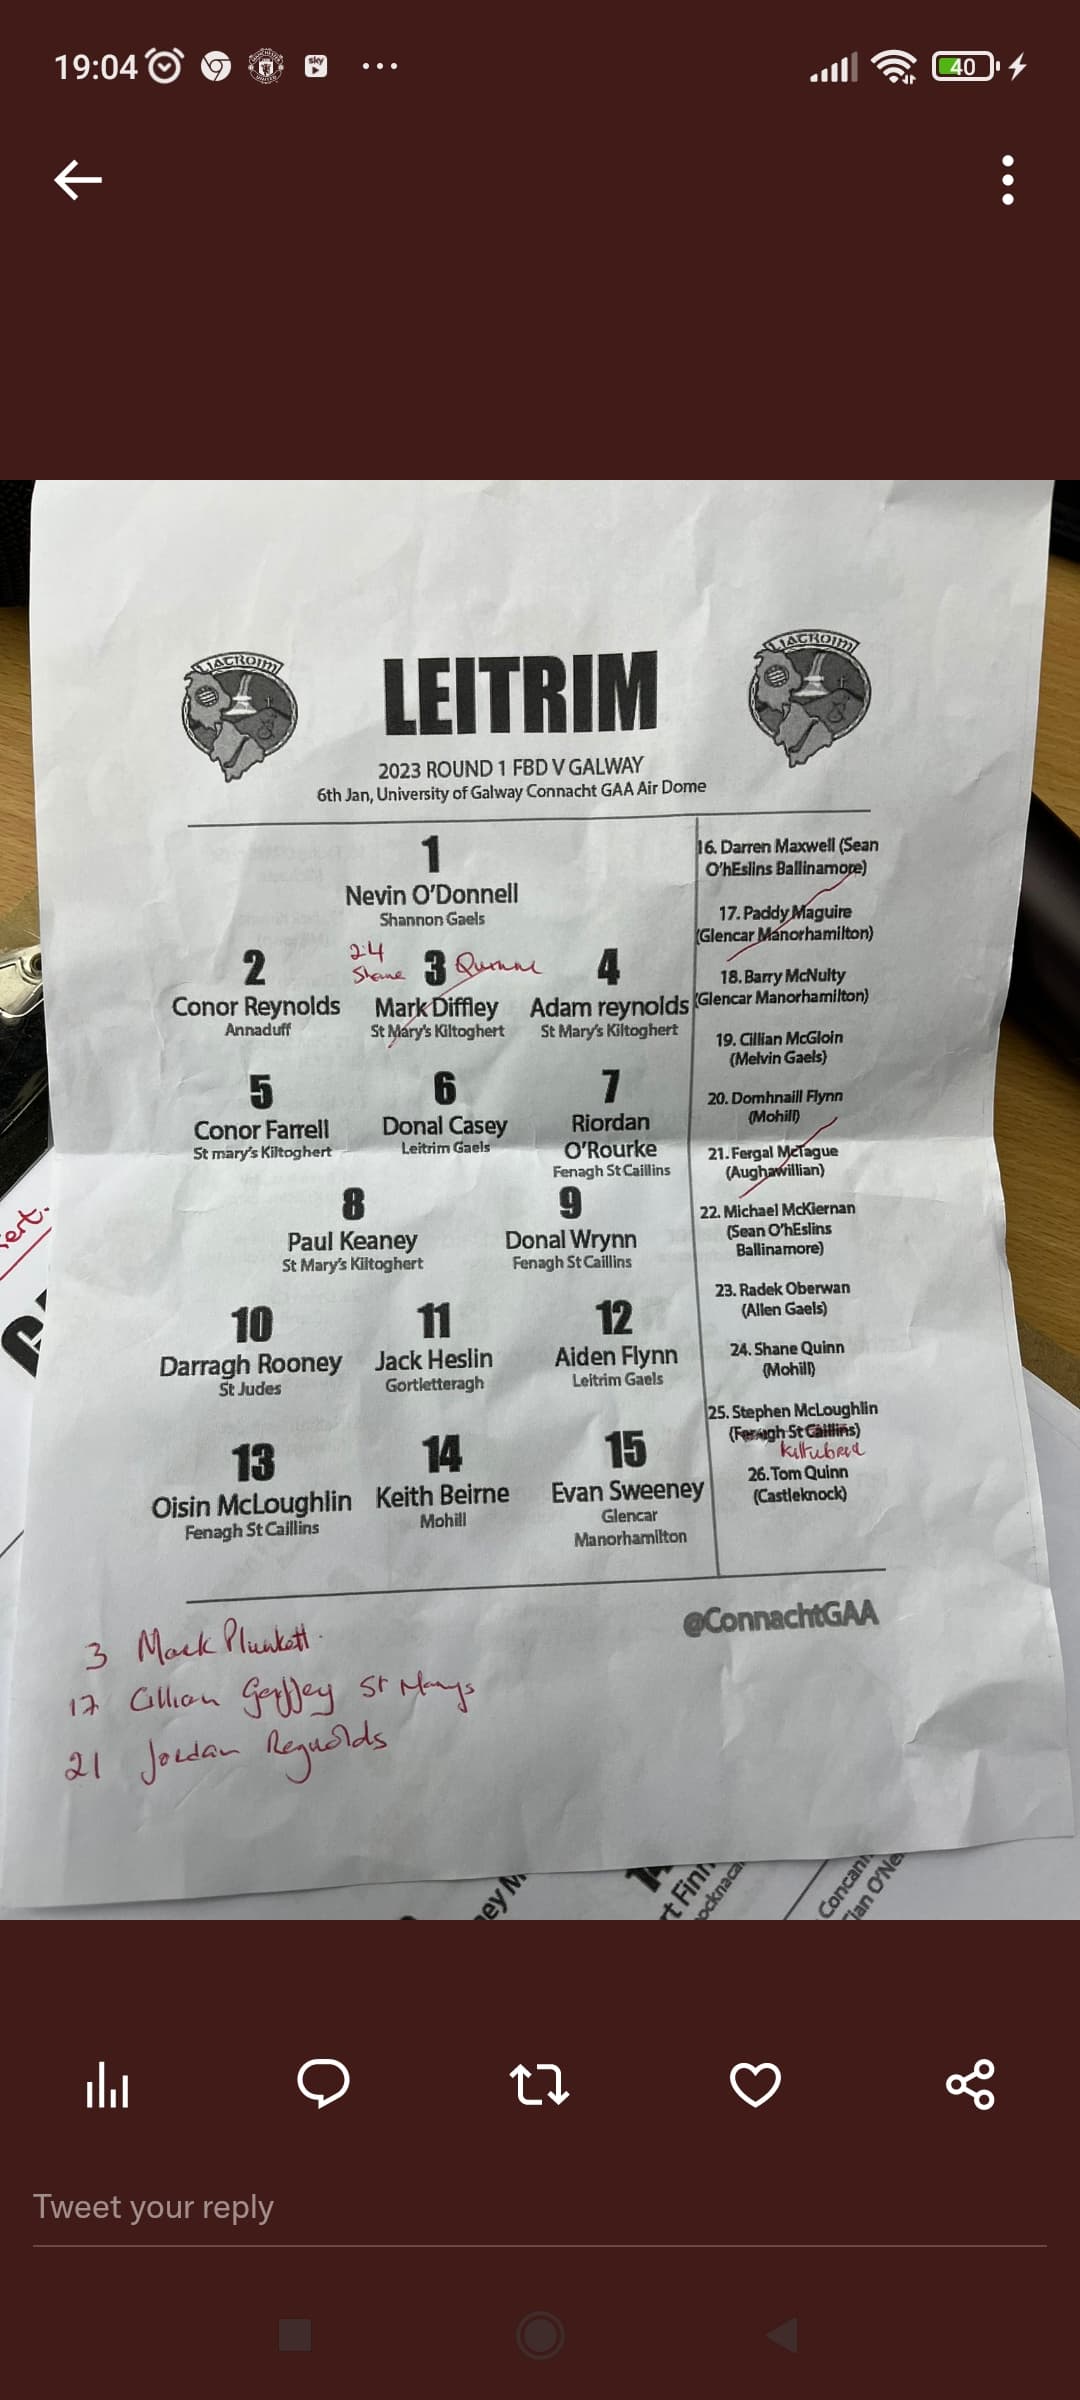 19:04
sky
40
LIATROIM
LEITRIM
LIATROIM
2023 ROUND 1 FBD V GALWAY
6th Jan, University of Galway Connacht GAA Air Dome
1
Nevin O'Donnell
Shannon Gaels
24
Shane
Quinn
2
3
4
Conor Reynolds
Mark Diffley
Adam reynolds
Annaduff
St Mary's Kiltoghert
St Mary's Kiltoghert
5
6
7
Conor Farrell
Donal Casey
Riordan
O'Rourke
St mary's Kiltoghert
Leitrim Gaels
Fenagh St Caillins
8
9
Paul Keaney
Donal Wrynn
St Mary's Kiltoghert
Fenagh St Caillins
10
11
12
Darragh Rooney
Jack Heslin
Aiden Flynn
St Judes
Gortletteragh
Leitrim Gaels
13
14
15
Oisin McLoughlin
Keith Beirne
Evan Sweeney
Fenagh St Caillins
Mohill
Glencar
Manorhamilton
16. Darren Maxwell (Sean
O'hEslins Ballinamore)
17. Paddy Maguire
(Glencar Manorhamilton)
18. Barry McNulty
(Glencar Manorhamilton)
19. Cillian McGloin
(Melvin Gaels)
20. Domhnaill Flynn
(Mohill)
21. Fergal McTague
(Aughawillian)
22. Michael McKiernan
(Sean O'hEslins
Ballinamore)
23. Radek Oberwan
(Allen Gaels)
24. Shane Quinn
(Mohill)
25. Stephen McLoughlin
(Fenagh St Caillins)
kiltubrid
26. Tom Quinn
(Castleknock)
@ConnachtGAA
3 Mark Plunkett
17 Cillian Gaffney St Marys
21 Jordan Reynolds
ert.
ey M
14
rt Finn
ocknaca
Concann
ian O'Ne
Tweet your reply